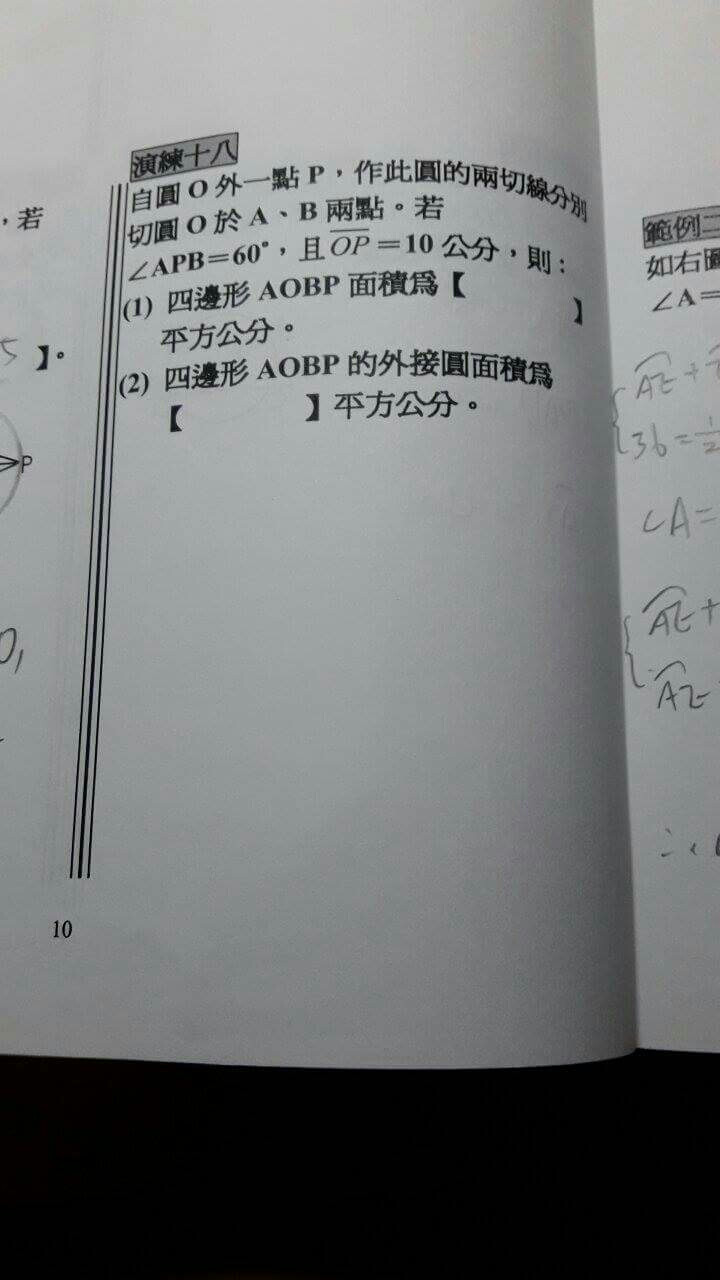 演練十八
自圓 O 外一點 P，作此圓的兩切線分別
切圓 O 於 A、B 兩點。若
∠APB＝60°，且 OP＝10 公分，則：
(1) 四邊形 AOBP 面積為【 】
平方公分。
(2) 四邊形 AOBP 的外接圓面積為
【 】平方公分。
10
，若
5 】。
P
0,
範例二
如右圖
∠A＝
AE +
36 = 1/2
∠A=
AE +
AE